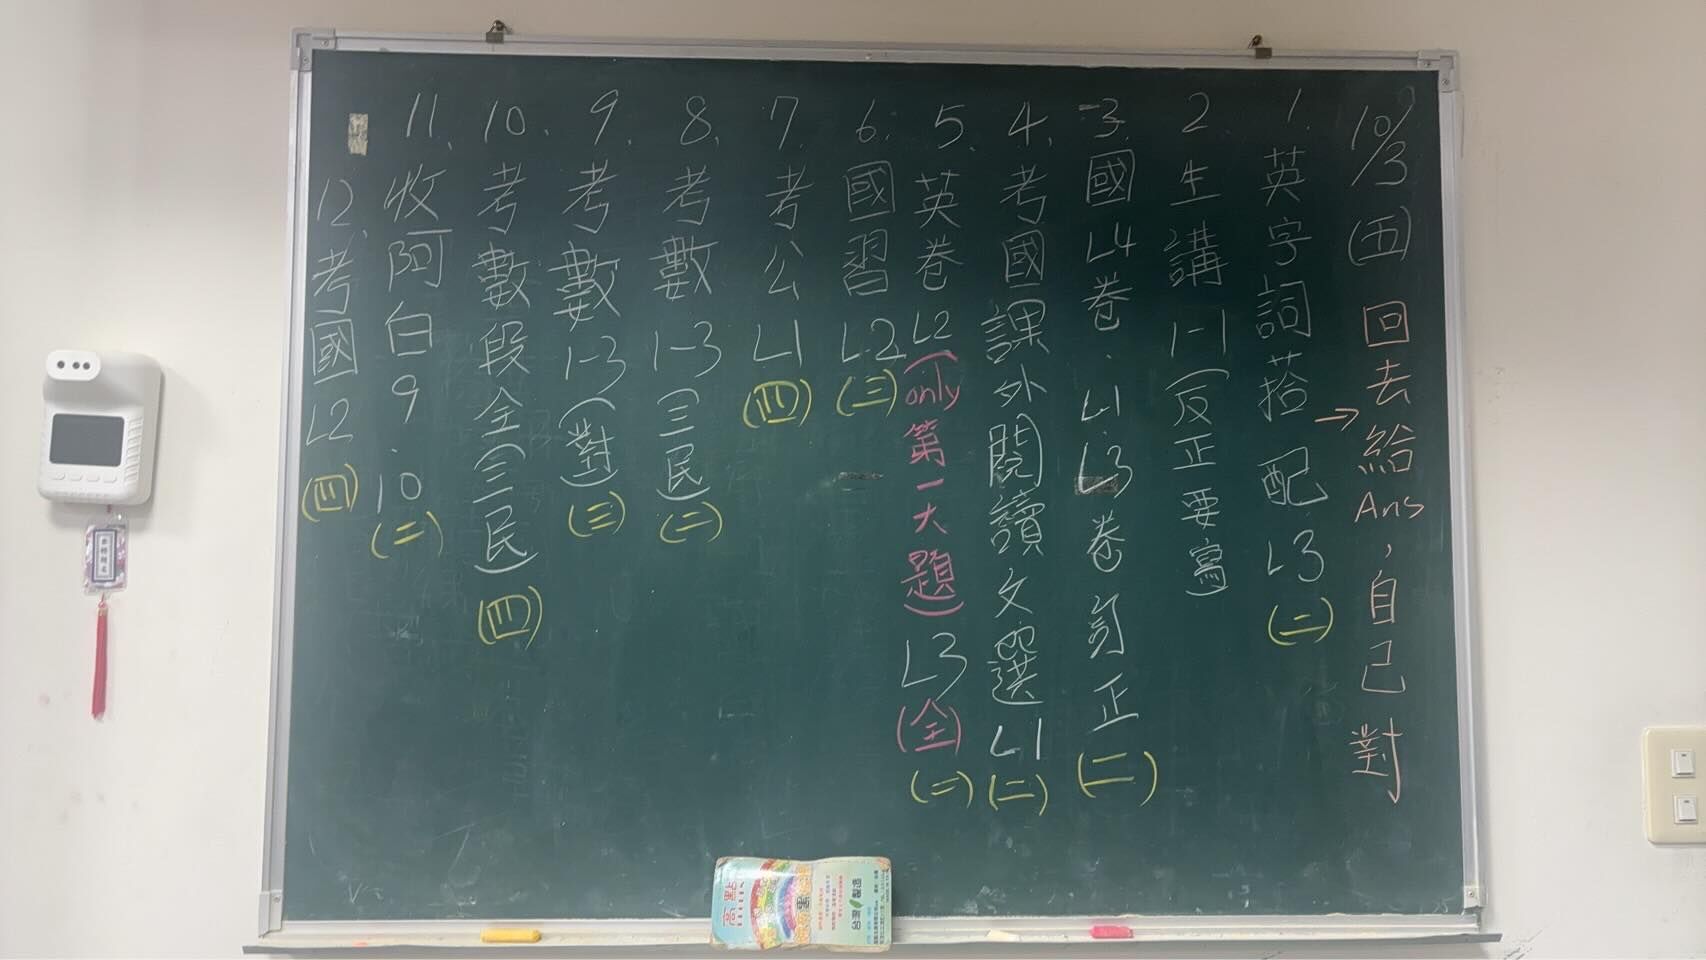 10/3(五) 回去給Ans，自己對
1. 英字詞拾→配 L3 (二)
2. 生講 1-1(反正要寫)
3. 國L4卷、L1 L3卷訂正 (二)
4. 考國課外閱讀文選L1 (二)
5. 英卷 L2(only第一大題) L3(全) (二)
6. 國習 L2 (三)
7. 考公 L1 (四)
8. 考數 1-3 (三民) (二)
9. 考數 1-3 (對) (三)
10. 考數段全(三民) (四)
11. 收阿白 9、10 (二)
12. 考國 L2 (四)
高點
台灣製造